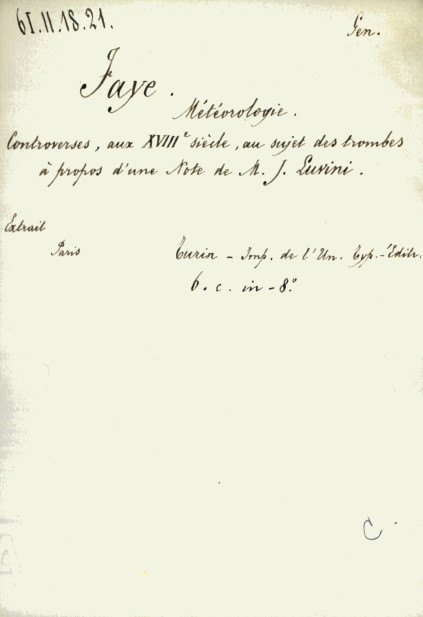 61.II.18.21.
Gen.
Faye.
Météorologie.
Controverses, aux XVIIIe siècle, au sujet des trombes
à propos d'une Note de M. J. Luvini.
Extrait
Paris Turin - Imp. de l'Un. Typ.-Editr.
6. c. in - 8.º
C